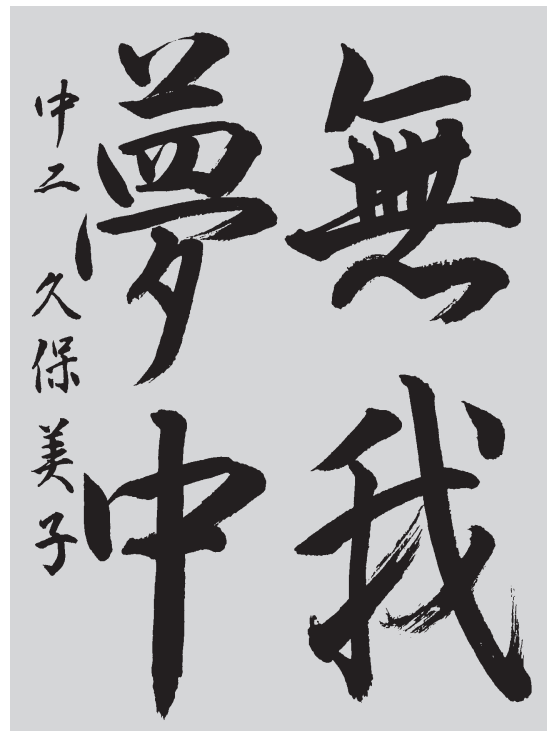 無我
夢中
中二 久保美子